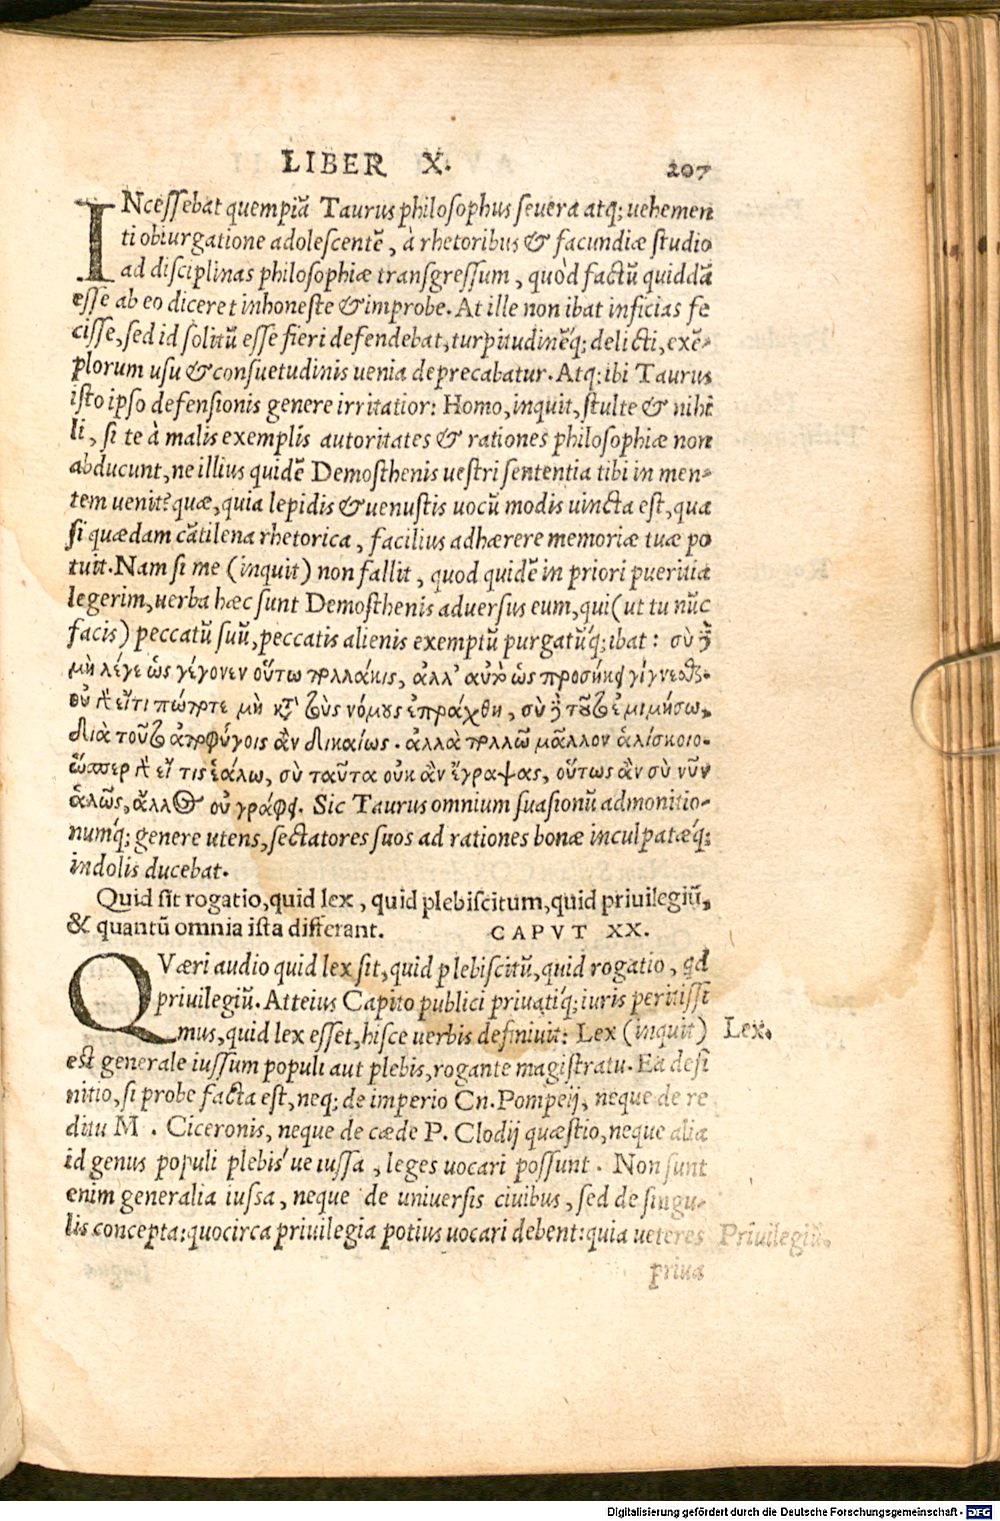 LIBER X. 207
INcessebat quempiā Taurus philosophus seuera atq; uehemen
ti obiurgatione adolescentē, à rhetoribus & facundiæ studio
ad disciplinas philosophiæ transgressum, quòd factū quiddā
esse ab eo diceret inhoneste & improbe. At ille non ibat inficias fe
cisse, sed id solitū esse fieri defendebat, turpitudinēq́; delicti, exē-
plorum usu & consuetudinis uenia deprecabatur. Atq; ibi Taurus
isto ipso defensionis genere irritatior: Homo, inquit, stulte & nihi
li, si te à malis exemplis autoritates & rationes philosophiæ non
abducunt, ne illius quidē Demosthenis uestri sententia tibi in men-
tem uenit? quæ, quia lepidis & uenustis uocū modis uincta est, qua
si quædam cātilena rhetorica, facilius adhærere memoriæ tuæ po
tuit. Nam si me (inquit) non fallit, quod quidē in priori pueritia
legerim, uerba hæc sunt Demosthenis aduersus eum, qui (ut tu nūc
facis) peccatū suū, peccatis alienis exemptū purgatūq́; ibat: σὺ ἢ
μὴ λέγε ὡς γέγονεν οὕτω πολλάκις, ἀλλ' αὐτὸ ὡς προσήκει γίγνεσθαι.
οὐ γὰρ εἴ τι πώποτε μὴ κτ' τοὺς νόμους ἐπράχθη, σὺ ἢ τοῦτο ἐμιμήσω,
διὰ τοῦτο ἀποφύγοις ἂν δικαίως. ἀλλὰ πολλῶ μᾶλλον ἁλίσκοιο.
ὥσπερ γὰρ εἴ τις ἑάλω, σὺ ταῦτα οὐκ ἂν ἔγραψας, οὕτως ἂν σὺ νῦν
ἁλῶς, ἄλλος οὐ γράφει. Sic Taurus omnium suasionū admonitio-
numq́; genere utens, sectatores suos ad rationes bonæ inculpatæq́;
indolis ducebat.
Quid sit rogatio, quid lex, quid plebiscitum, quid priuilegiū,
& quantū omnia ista differant. CAPVT XX.
QVæri audio quid lex sit, quid plebiscitū, quid rogatio, qd
priuilegiū. Atteius Capito publici priuatiq́; iuris peritissi
mus, quid lex esset, hisce uerbis definiuit: Lex (inquit) Lex.
est generale iussum populi aut plebis, rogante magistratu. Ea defi
nitio, si probe facta est, neq; de imperio Cn. Pompeij, neque de re
ditu M. Ciceronis, neque de cæde P. Clodij quæstio, neque alia
id genus populi plebis'ue iussa, leges uocari possunt. Non sunt
enim generalia iussa, neque de uniuersis ciuibus, sed de singu-
lis concepta: quocirca priuilegia potius uocari debent: quia ueteres Priuilegiū.
priua
Digitalisierung gefördert durch die Deutsche Forschungsgemeinschaft - DFG